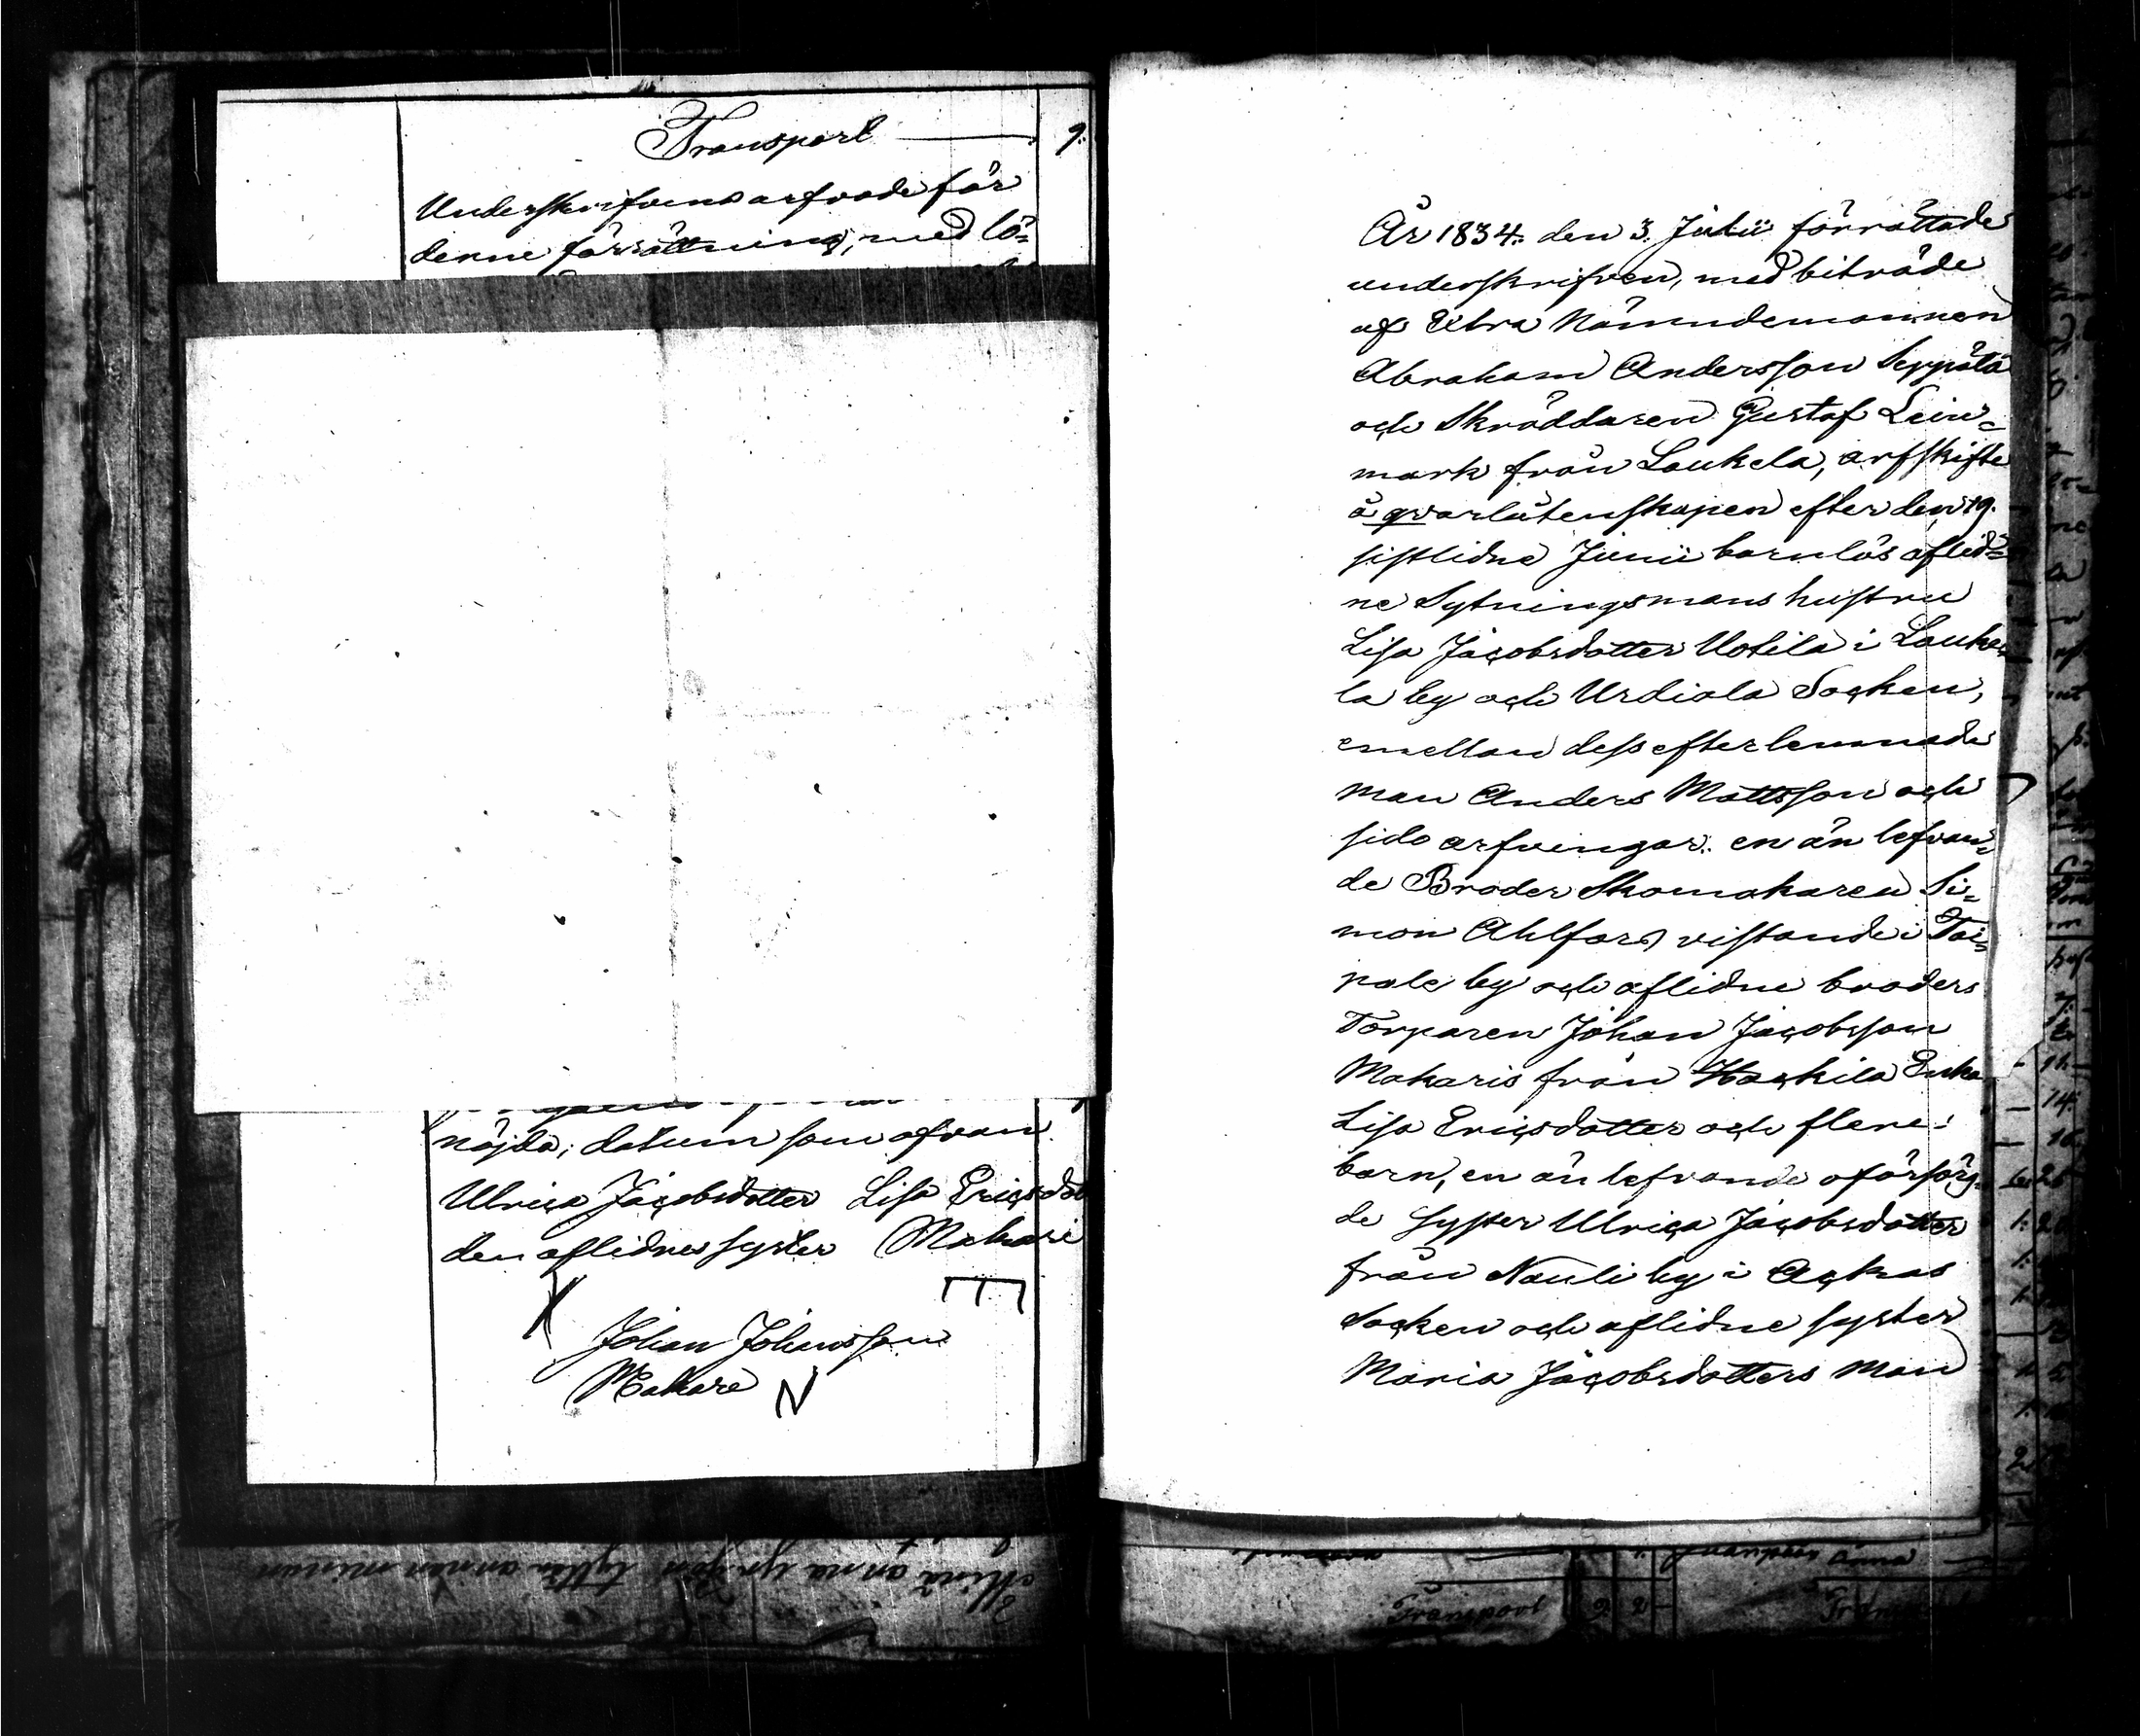 Transport 9.
Underskrifvens arfvode för
denne förrättning, med lö-
nöjda; datum som ofvan.
Ulrica Jacobsdotter Lisa Ericsdot
den aflidnes syster Makari
Johan Johansson
Makare N
År 1834. den 3. Julii förrättade
underskrifven, med biträde
af Extra Nämndemannen
Abraham Andersson Seppälä
och Skräddaren Gustaf Lein-
mark från Laukela, arfskifte
å qvarlåtenskapen efter den 19.
sistlidne Junii barnlös aflid-
ne Sytningsmans hustru
Lisa Jacobsdotter Uotila i Lauke-
la by och Urdiala Socken,
emellan dess efterlemnade
man Anders Mattsson och
sido arfvingar: en än lefvan-
de Broder Skomakaren Si-
mon Ahlfors vistande i Tai-
pale by och aflidne broders
Torparen Johan Jacobsson
Makaris från Hackila Enka
Lisa Ericsdotter och flere
barn, en än lefvande oförsörg-
de Syster Ulrica Jacobsdotter
från Nauli by i Ackas
Socken och aflidne syster
Maria Jacobsdotters man
Transport